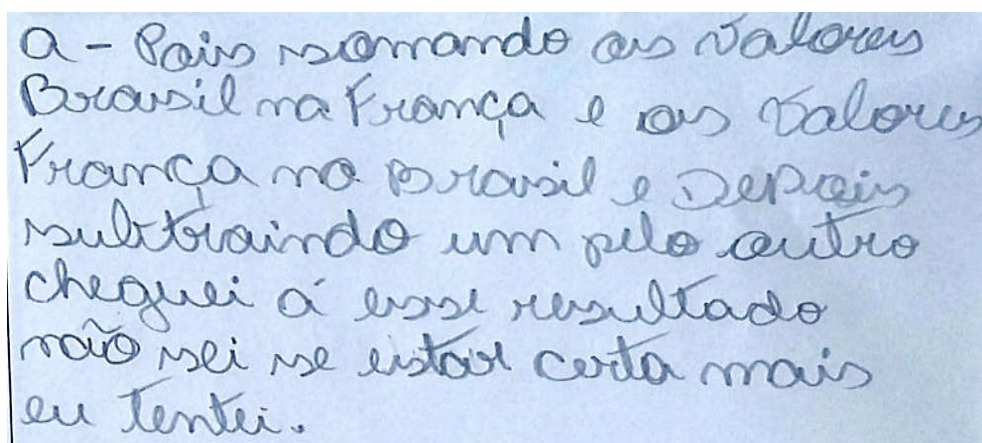 a - Pois somando os Valores
Brasil na França e os Valores
França no Brasil e Depois
subtraindo um pelo outro
cheguei á esse resultado
não sei se estar certa mais
eu tentei.